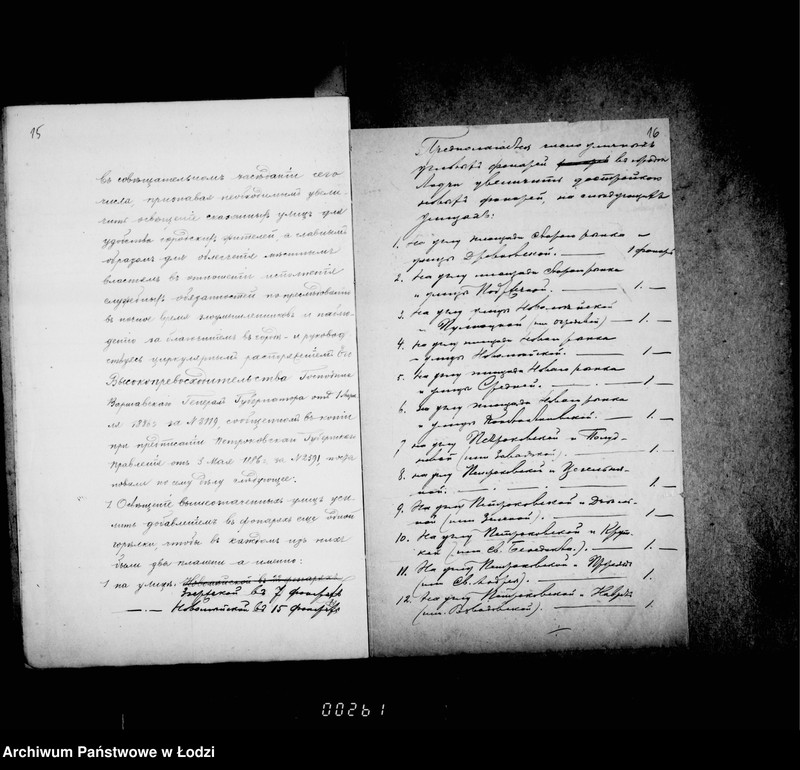 15
въ совѣщательномъ засѣданіи сего
числа, признавая необходимымъ увели-
чить освѣщеніе сказанныхъ улицъ для
удобства городскихъ жителей, а главнымъ
образомъ для облегченія мѣстнымъ
властямъ въ отношеніи исполненія
служебныхъ обязанностей по преслѣдованію
въ ночное время злоумышленниковъ и наблю-
денію за благочиніемъ въ городѣ и руковод-
ствуясь циркулярнымъ распоряженіемъ Его
Высокопревосходительства Господина
Варшавскаго Генералъ Губернатора отъ 1
ля 1886 г. за № 2119, сообщеннымъ въ копіи
при предписаніи Петроковскаго Губернскаго
Правленія отъ 3 Мая 1886 г. за № 2391
по сему дѣлу слѣдующее:
1 Освѣщеніе вышесказанныхъ улицъ уси-
лить добавленіемъ въ фонаряхъ еще одной
горѣлки, чтобы въ каждомъ изъ нихъ
были два пламени а именно:
1 на улицѣ
Згержской въ 7 фонаряхъ
—.— Новомѣйской въ 15 фонаряхъ
16
Предполагается число уличныхъ
газовыхъ фонарей въ городѣ
Лодзи увеличить постройкою
новыхъ фонарей, на слѣдующихъ
улицахъ:
1. на углу площади Стараго рынка и
улицы Древновской. — 1 фонарь
2. На углу площади Стараго рынка
и улицы Подрѣчной. — 1. —
3. На углу улицы Новомѣйской
и — 1. —
4. На углу площади Новаго рынка
и улицы Новомѣйской. — 1 —
5. На углу площади Новаго рынка
и улицы Средней. — 1 —
6. На углу площади Новаго рынка
и улицы Константиновской. — 1. —
7 на углу Петроковской и Полуд-
невой (или Завадзкой) — 1. —
8. на углу Петроковской и Цегельня-
ной. — 1. —
9. На углу Петроковской и Дзель-
ной (или Зеленой). — 1 —
10. На углу Петроковской и Кру-
кой (или Св. Бенедикта.). — 1. —
11. На углу Петроковской и Пржеяздъ
(или Св. Андрея) — 1.
12. На углу Петроковской и Наврот
(или Розвадовской). — 1.
00261
Archiwum Państwowe w Łodzi